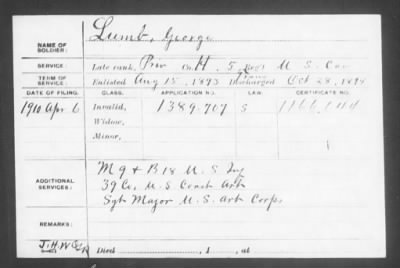 NAME OF SOLDIER: Lumb, George
SERVICE: Late rank, Priv Co. H, 5 Reg't U S Cav
TERM OF SERVICE: Enlisted Aug 15, 1893 Discharged Oct 28, 1894
DATE OF FILING. CLASS. APPLICATION NO. LAW. CERTIFICATE NO.
1910 Apr 6 Invalid, 1389.707 S
Widow,
Minor,
ADDITIONAL SERVICES: M 9 & B 18 U. S Inf
39 Co, U.S Coast Art
Sgt Major U.S. Art Corps
REMARKS:
Died , 1 , at